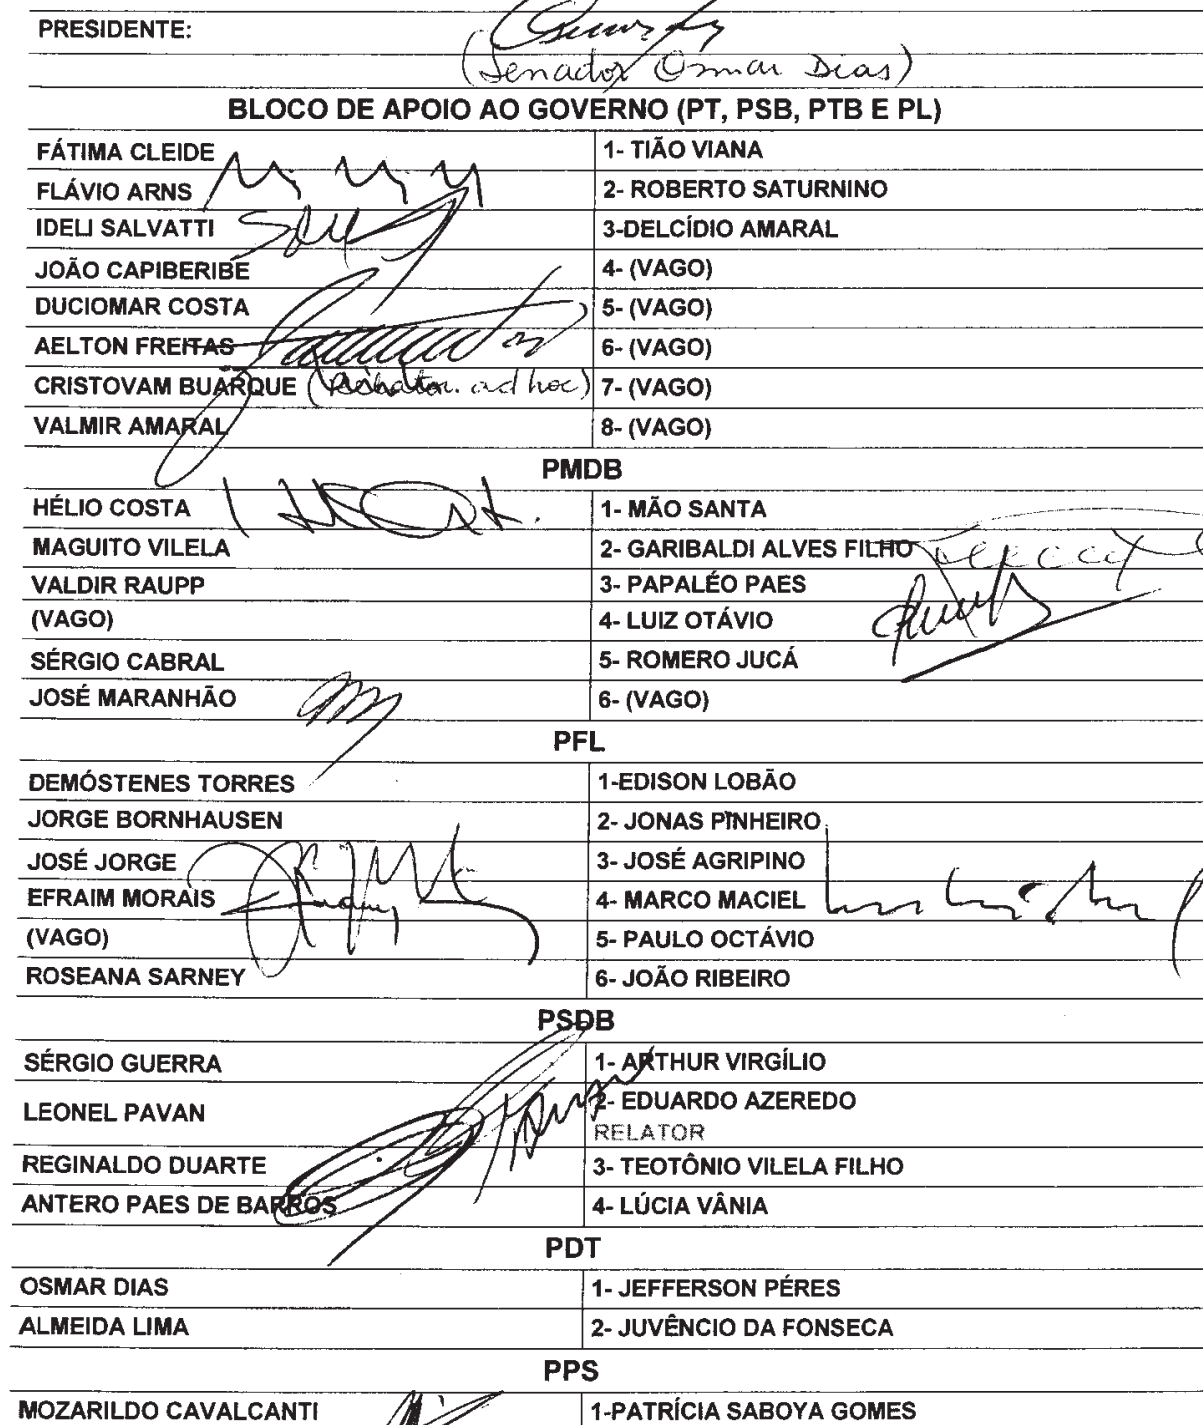 PRESIDENTE:
(Senador Osmar Dias)
BLOCO DE APOIO AO GOVERNO (PT, PSB, PTB E PL)
FÁTIMA CLEIDE 1- TIÃO VIANA
FLÁVIO ARNS 2- ROBERTO SATURNINO
IDELI SALVATTI 3-DELCÍDIO AMARAL
JOÃO CAPIBERIBE 4- (VAGO)
DUCIOMAR COSTA 5- (VAGO)
AELTON FREITAS 6- (VAGO)
CRISTOVAM BUARQUE ad hoc) 7- (VAGO)
VALMIR AMARAL 8- (VAGO)
PMDB
HÉLIO COSTA 1- MÃO SANTA
MAGUITO VILELA 2- GARIBALDI ALVES FILHO
VALDIR RAUPP 3- PAPALÉO PAES
(VAGO) 4- LUIZ OTÁVIO
SÉRGIO CABRAL 5- ROMERO JUCÁ
JOSÉ MARANHÃO 6- (VAGO)
PFL
DEMÓSTENES TORRES 1-EDISON LOBÃO
JORGE BORNHAUSEN 2- JONAS PINHEIRO
JOSÉ JORGE 3- JOSÉ AGRIPINO
EFRAIM MORAIS 4- MARCO MACIEL
(VAGO) 5- PAULO OCTÁVIO
ROSEANA SARNEY 6- JOÃO RIBEIRO
PSDB
SÉRGIO GUERRA 1- ARTHUR VIRGÍLIO
LEONEL PAVAN 2- EDUARDO AZEREDO
RELATOR
REGINALDO DUARTE 3- TEOTÔNIO VILELA FILHO
ANTERO PAES DE BARROS 4- LÚCIA VÂNIA
PDT
OSMAR DIAS 1- JEFFERSON PÉRES
ALMEIDA LIMA 2- JUVÊNCIO DA FONSECA
PPS
MOZARILDO CAVALCANTI 1-PATRÍCIA SABOYA GOMES